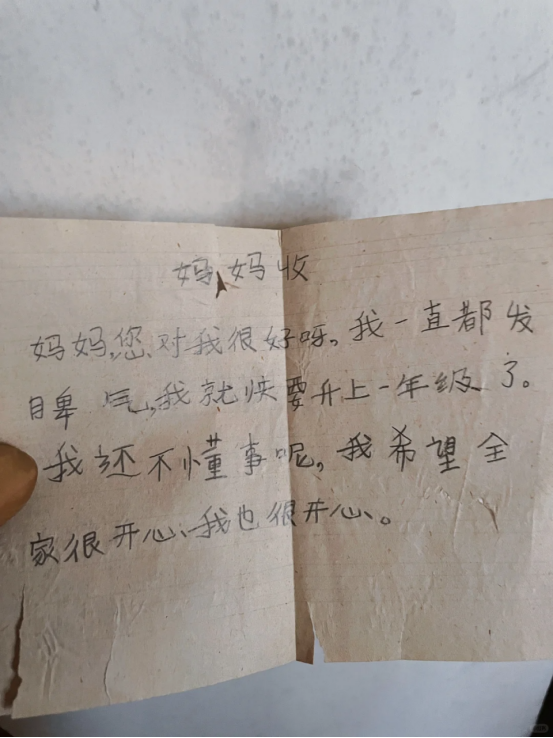 妈妈收
妈妈,您对我很好呀。我一直都发
睥气,我就快要升上一年级了。
我还不懂事呢,我希望全
家很开心、我也很开心。